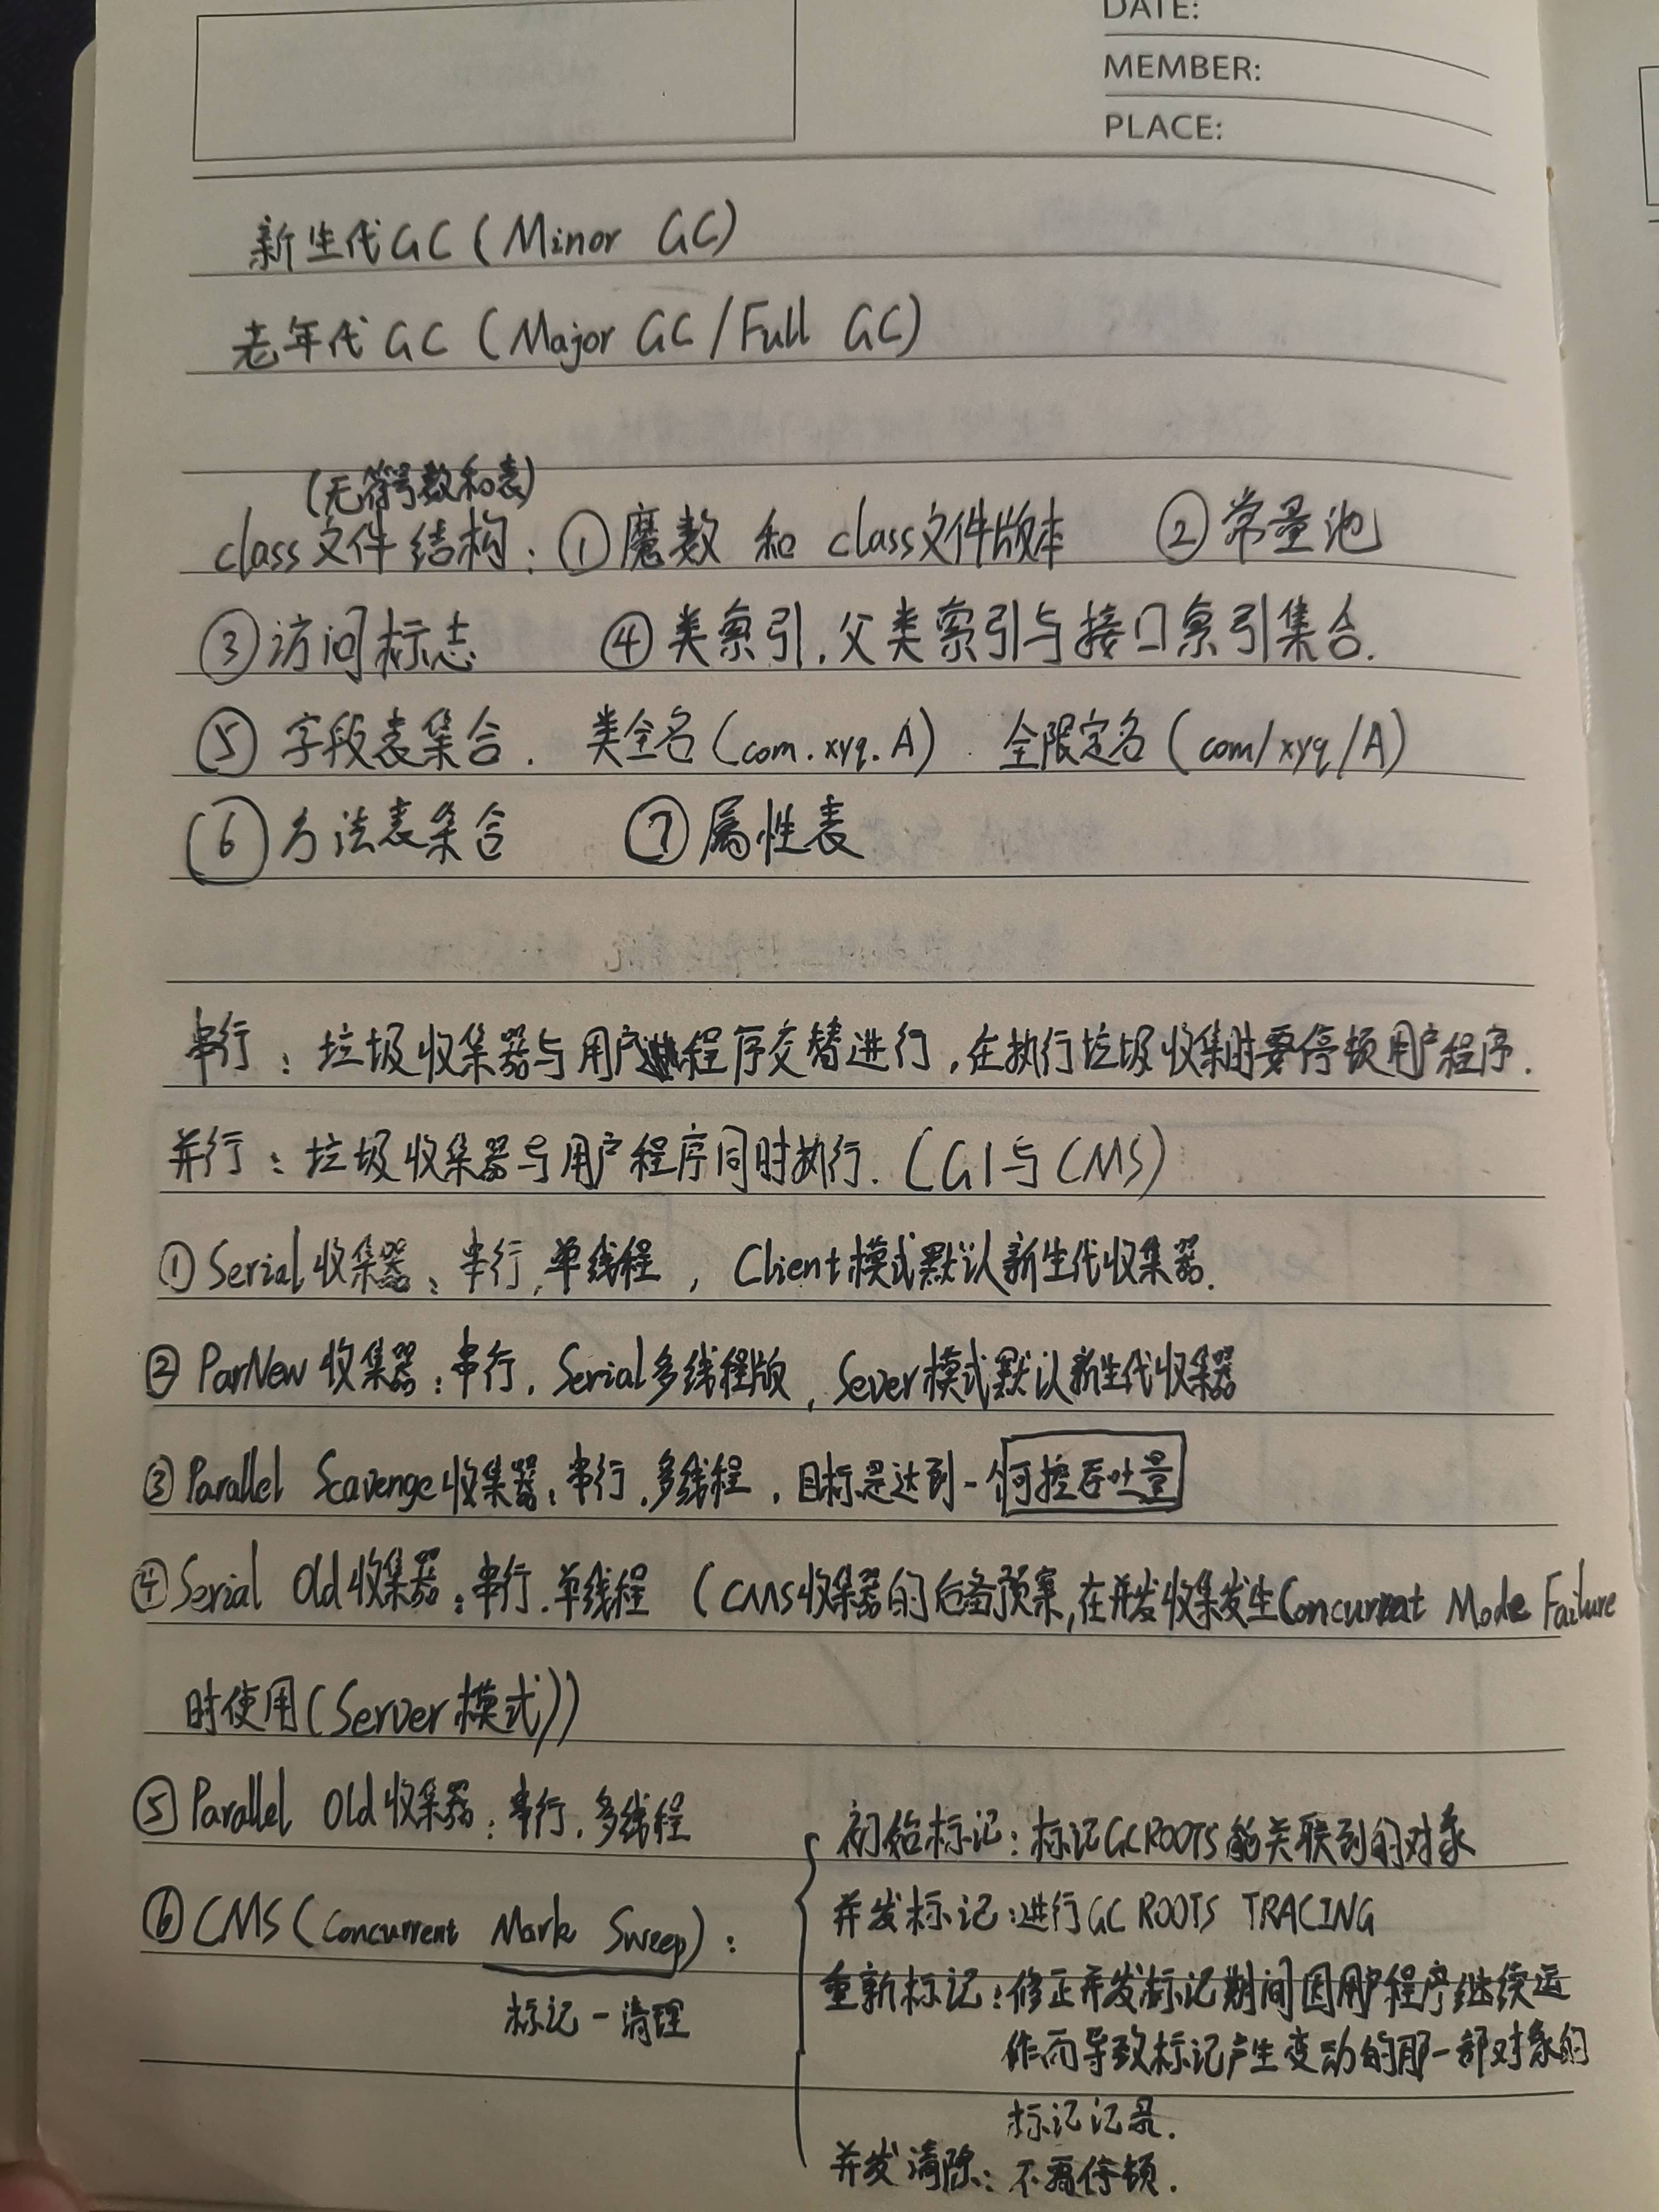 DATE:
MEMBER:
PLACE:
新生代GC(Minor GC)
老年代GC(Major GC/Full GC)
(无符号数和表)
class文件结构:①魔数 和 class文件版本 ②常量池
③访问标志 ④类索引,父类索引与接口索引集合.
⑤字段表集合. 类全名(com.xyq.A). 全限定名(com/xyq/A)
⑥方法表集合 ⑦属性表
串行:垃圾收集器与用户程序交替进行,在执行垃圾收集时要停顿用户程序.
并行:垃圾收集器与用户程序同时执行.(G1与CMS)
①Serial收集器:串行,单线程,Client模式默认新生代收集器.
②ParNew收集器:串行,Serial多线程版,Sever模式默认新生代收集器
③Parallel Scavenge收集器:串行,多线程,目标是达到一个可控吞吐量
④Serial Old收集器:串行.单线程 (CMS收集器的后备预案,在并发收集发生Concurrent Mode Failure
时使用(Server模式))
⑤Parallel Old收集器:串行.多线程
⑥CMS(Concurrent Mark Sweep):
标记-清理
初始标记:标记GC ROOTS能关联到的对象
并发标记:进行GC ROOTS TRACING
重新标记:修正并发标记期间因用户程序继续运
作而导致标记产生变动的那一部对象的
标记记录.
并发清除:不需停顿.